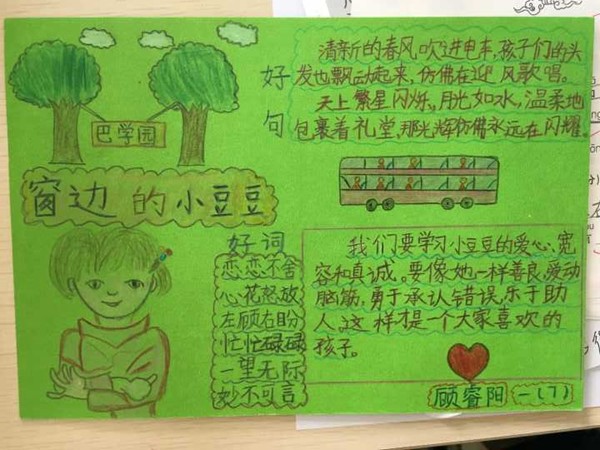 巴学园
窗边的小豆豆
好句
清新的春风吹进电车,孩子们的头
发也飘动起来,仿佛在迎风歌唱。
天上繁星闪烁,月光如水,温柔地
包裹着礼堂,那光辉仿佛永远在闪耀。
好词
恋恋不舍
心花怒放
左顾右盼
忙忙碌碌
一望无际
妙不可言
我们要学习小豆豆的爱心、宽
容和真诚。要像她一样善良,爱动
脑筋,勇于承认错误,乐于助
人,这样才是一个大家喜欢的
孩子。
顾睿阳 一(7)